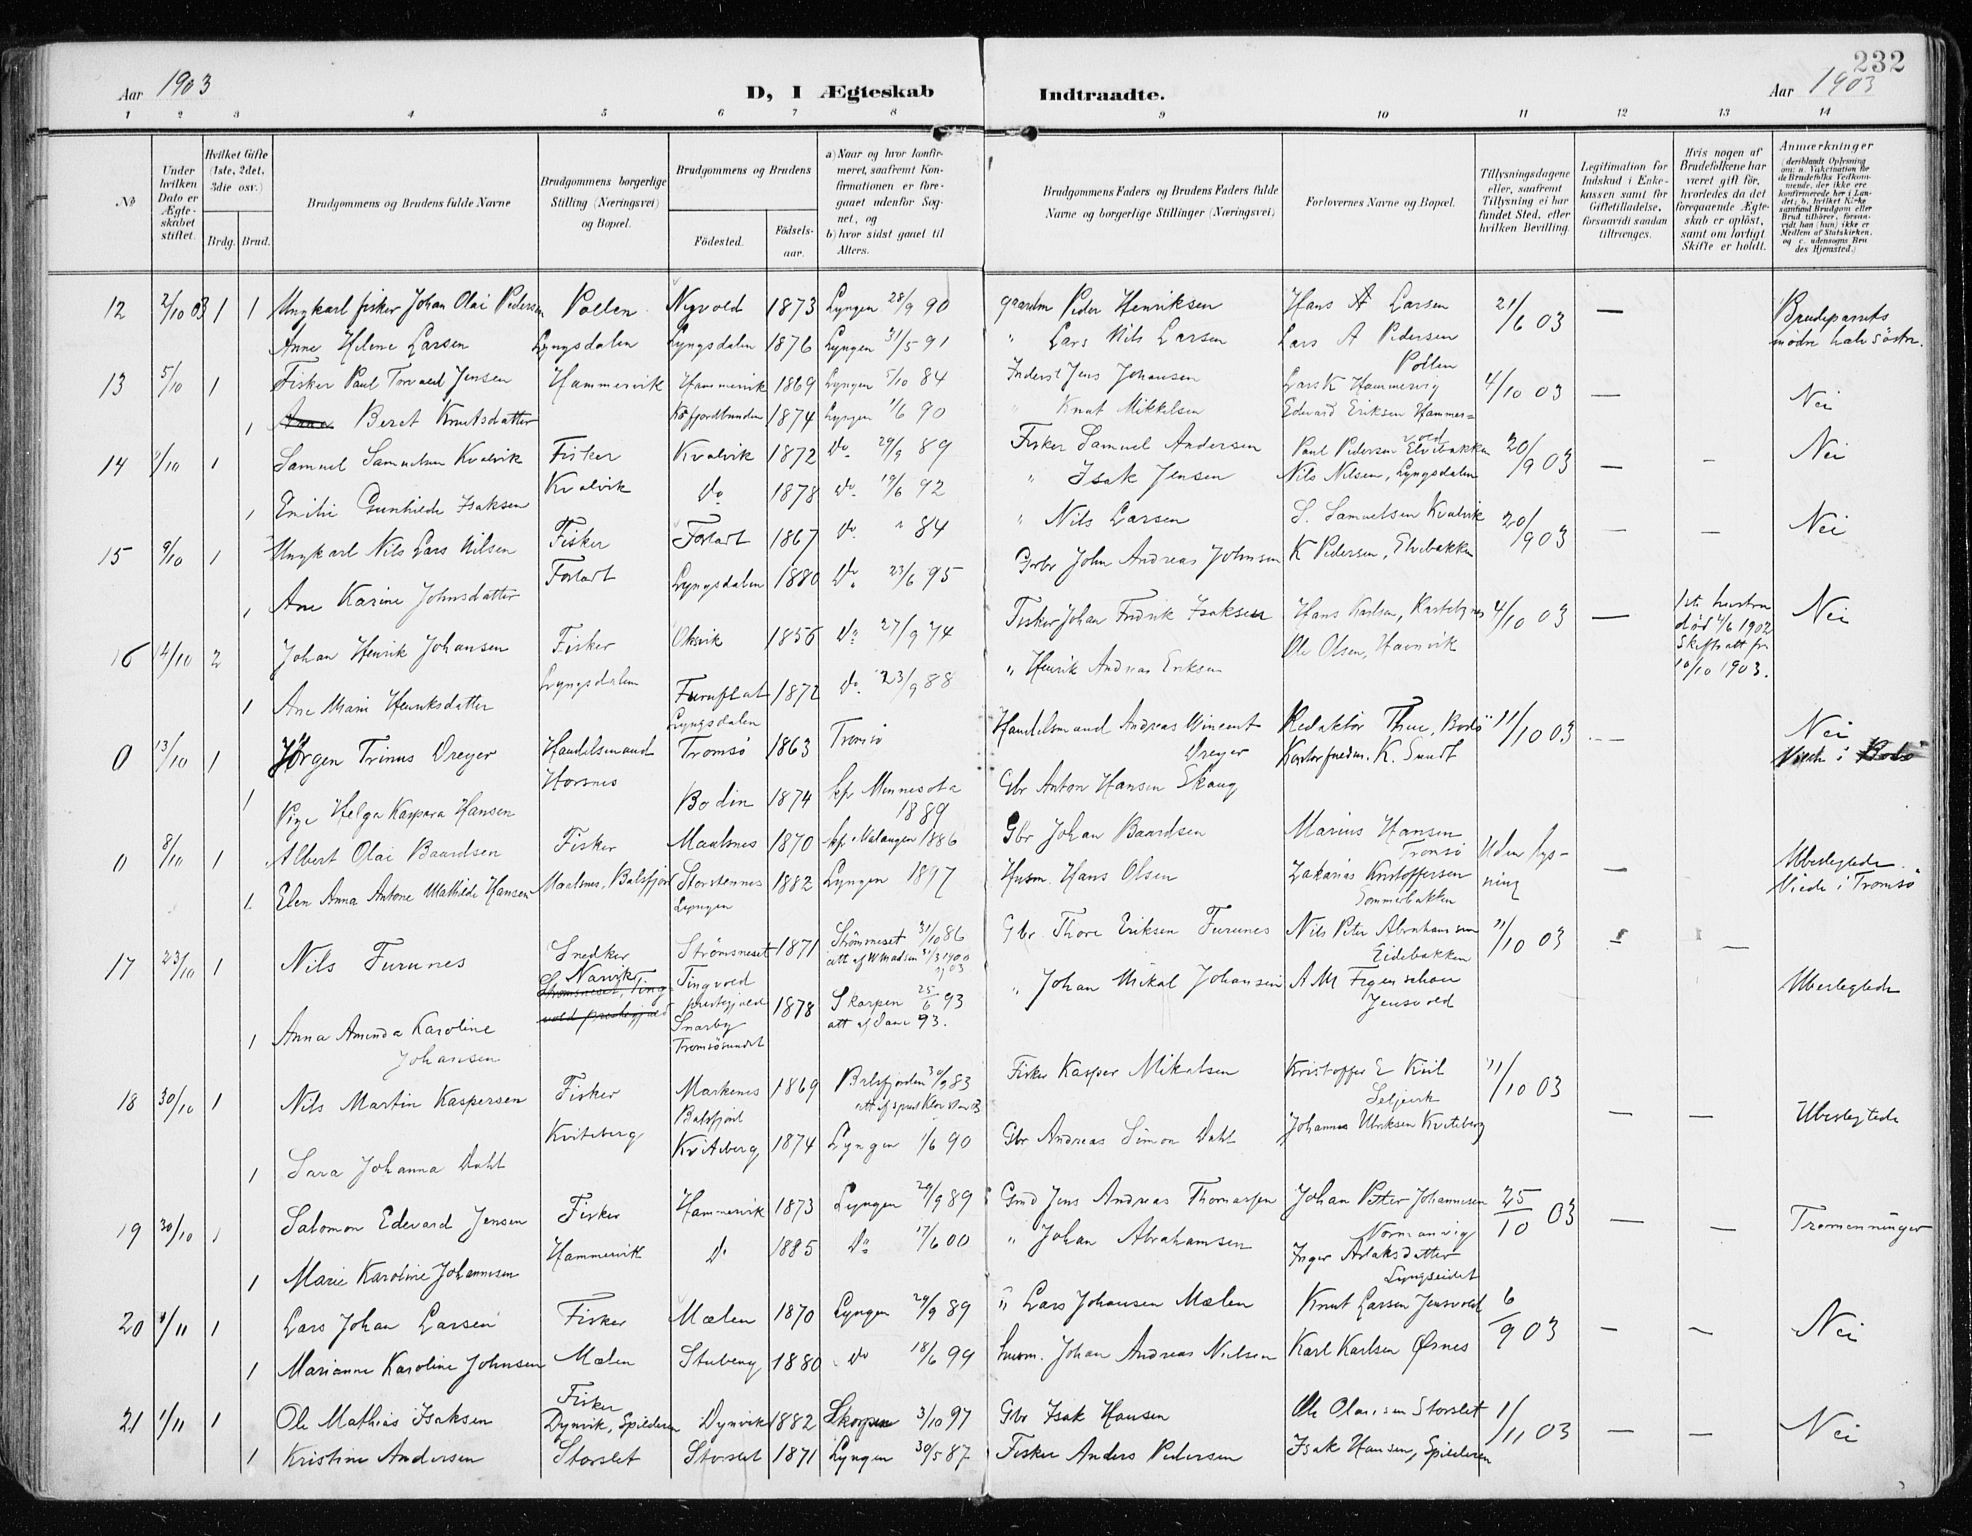 232
Aar 1903
D, I Ægteskab Indtraadte.
Aar 1903
1 2 3 4 5 6 7 8 9 10 11 12 13 14
No
Under hvilken Dato er Ægteskabet stiftet.
Hvilket Gifte (1ste, 2det, 3die osv.)
Brdg. Brud.
Brudgommens og Brudens fulde Navne
Brudgommens borgerlige Stilling (Næringsvei) og Bopæl.
Brudgommens og Brudens
Födested. Födselsaar.
a) Naar og hvor konfirmeret, saafremt Konfirmationen er foregaaet udenfor Sognet, og
b) hvor sidst gaaet til Alters.
Brudgommens Faders og Brudens Faders fulde Navne og borgerlige Stillinger (Næringsvei)
Forlovernes Navne og Bopæl.
Tillysningsdagene eller, saafremt Tillysning ei har fundet Sted, efter hvilken Bevilling.
Legitimation for Indskud i Enkekassen samt for Giftetilladelse, forsaavidt saadan tiltrænges.
Hvis nogen af Brudefolkene har været gift för, hvorledes da det foregaaende Ægteskab er oplöst, samt om lovligt Skifte er holdt.
Anmærkninger
12 2/10 03 1 1 Ungkarl fisker Johan Olai Pedersen Pollen Nyvold 1873 Lyngen 28/9 90 gaardm Peder Henriksen Hans A Larsen 21/6 03 — Brudeparrets
Anne Helene Larsen Lyngsdalen Lyngsdalen 1876 Lyngen 31/5 91 " Lars Nils Larsen Lars A Pedersen Pollen mödre halvsöstre.
13 5/10 1 Fisker Paul Torvald Jensen Hammervik Hammervik 1869 Lyngen 5/10 84 Inderst Jens Johansen Lars K Hammervig 4/10 03 — Nei
1 Beret Knutsdatter Kåfjordbunden 1874 Lyngen 1/6 90 " Knut Mikkelsen Edevard Eriksen Hammervold
14 1/10 1 Samuel Samuelsen Kvalvik Fisker Kvalvik 1872 do. 29/9 89 Fisker Samuel Andersen Paul Pedersen Elvebakken 20/9 03 — — Nei
1 Emilie Gunhilde Isaksen Kvalvik do 1878 do. 19/6 92 " Isak Jensen Nils Nilsen, Lyngsdalen
15 9/10 1 Ungkarl Nils Lars Nilsen Fisker Forladt 1867 do. " 84 " Nils Larsen S. Samuelsen Kvalvik 20/9 03 — — Nei
1 Ane Karine Johnsdatter Forladt Lyngsdalen 1880 do. 23/6 95 Grbr John Andreas Johnsen K Pedersen, Elvebakken
16 14/10 2 Johan Henrik Johansen Fisker Oksvik 1856 do 27/9 74 Fisker Johan Fredrik Isaksen Hans Karlsen, Karlebynes 4/10 03 — 1ste hustru död 4/6 1902 Skifteatt fr 10/10 1903. Nei
1 Ane Marie Henriksdatter Lyngsdalen Furuflat Lyngsdalen 1872 do. 23/9 88 " Henrik Andreas Eriksen Ole Olsen, Havnvik
0 13/10 1 Jörgen Trinus Dreyer Handelsmand Tromsö 1863 Tromsö Handelsmand Andreas Wincent Dreyer Redaktör Thue, Bodö 11/10 03 — Nei
1 Pige Helga Kaspara Hansen Horsnes Bodin 1874 kf. Minnesota 1889 Gbr Anton Hansen Skaug Kontorfuldm. K. Sundt Viede i Bodö
0 8/10 1 Albert Olai Baardsen Fisker Maalsnes 1870 kf. Malangen 1886 Gbr Johan Baardsen Marius Hansen Tromsö Uden lysning — Ubeslegtede.
1 Elen Anna Antone Mathilde Hansen Maalsnes, Balsfjord Storstennes Lyngen 1882 Lyngen 1897 Husm. Hans Olsen Zakarias Kristoffersen Sommerbakken Viede i Tromsö
17 23/10 1 Nils Furunes Snedker Narvik Strömsneset Tingvold prestegjeld 1871 Strömneset 31/10 86 Gbr. Thore Eriksen Furunes Nils Peter Abrahamsen Eidebakken 11/10 03 — — Ubeslegtede
1 Anna Amanda Karoline Johansen Snarby Tromsösundet 1878 Skarpen 25/6 93 " Johan Mikal Johansen A M Fagenschou Jensvold
18 30/10 1 Nils Martin Kaspersen Fisker Markenes Balsfjord 1869 Balsfjorden 30/9 83 Fisker Kasper Mikalsen Kristoffer E Kiil Seljevik 11/10 03 — — Ubeslegtede
1 Sara Johanna Dahl Kviteberg Kviteberg 1874 Lyngen 1/6 90 Gbr Andreas Simon Dahl Johannes Ulriksen Kviteberg
19 30/10 1 Salomon Edevard Jensen Fisker Hammervik 1873 Lyngen 29/9 89 Gmd Jens Andreas Thomassen Johan Petter Johannesen Normanvig 25/10 03 — — Tremenninger
1 Marie Karoline Johannesen Hammervik do 1885 do 17/6 00 " Johan Abrahamsen Inger Aslaksdatter Lyngseidet
20 1/11 1 Lars Johan Larsen Fisker Mælen 1870 Lyngen 29/9 89 " Lars Johansen Mælen Knut Larsen Jensvold 6/9 03 — — Nei
1 Marianne Karoline Johnsen Mælen Stubeng 1880 do 18/6 99 husm. Johan Andreas Nielsen Karl Karlsen Ørnes
21 1/11 1 Ole Mathias Isaksen Fisker Dynvik, Spilderen Dynvik 1882 Skarpen 3/10 97 Gbr Isak Hansen Ole Olaisen Storslet 1/11 03 — — Nei
1 Kristine Andersen Storslet Storslet 1871 Lyngen 30/5 87 Fisker Anders Pedersen Isak Hansen, Spilderen